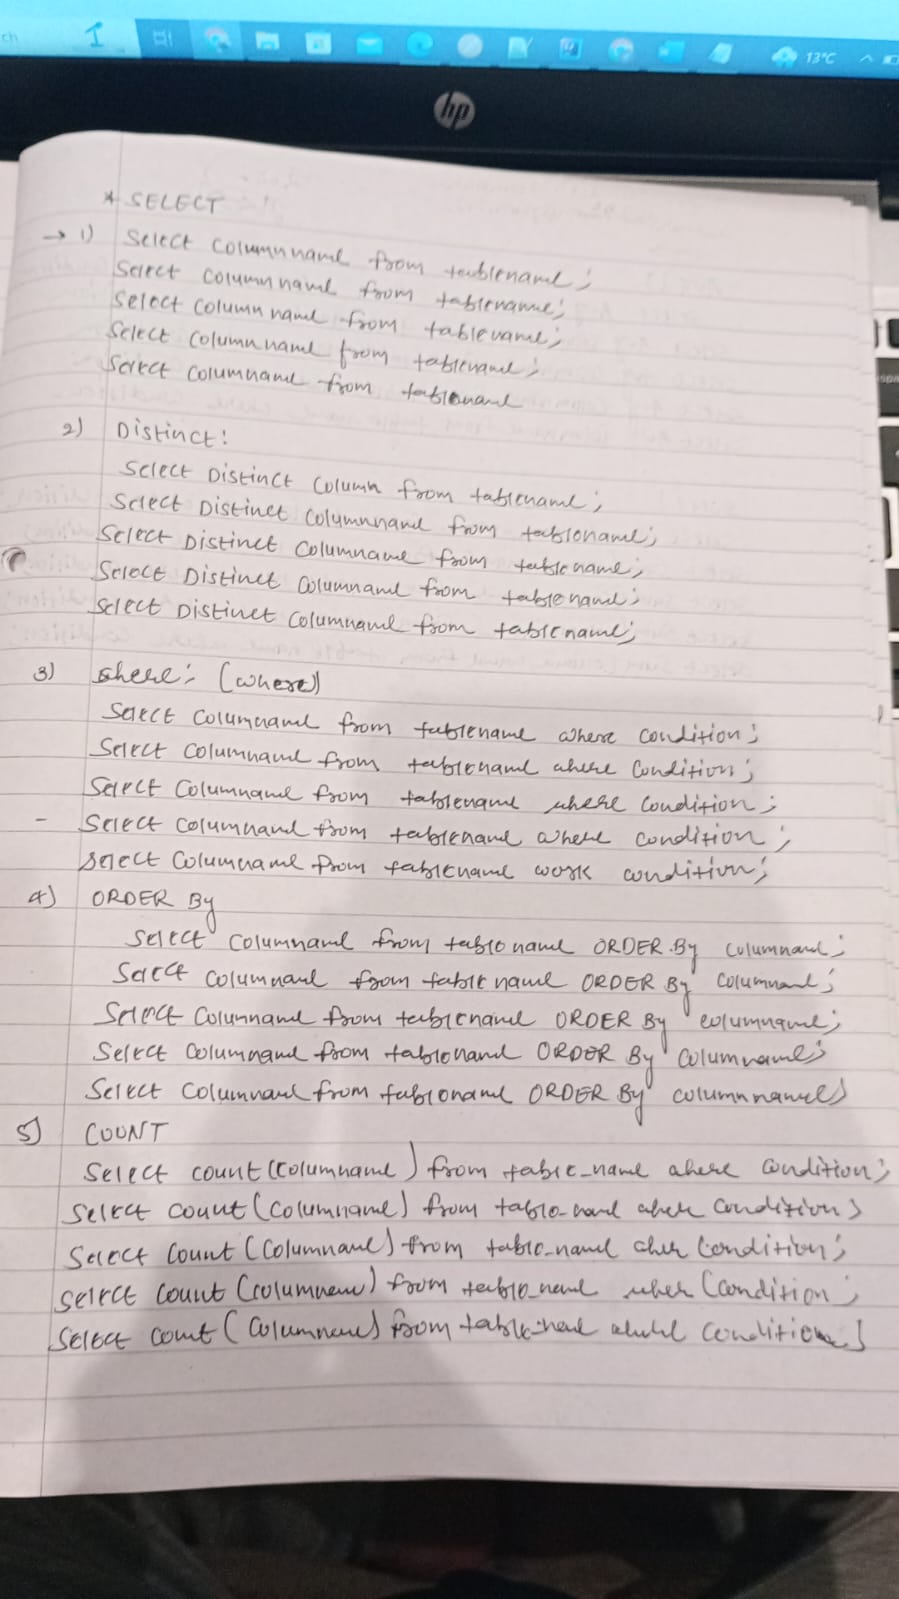 13°C
hp
* SELECT
→ 1) Select Columnname from tablename;
Select Columnname from tablename;
Select Columnname from tablename;
Select Columnname from tablename;
Select Columname from tablename
2) Distinct:
Select Distinct Column from tablename;
Select Distinct Columnname from tablename;
Select Distinct Columname from tablename;
Select Distinct Columname from tablename;
Select Distinct Columname from tablename;
3) where: (where)
Select Columname from tablename where Condition;
Select Columname from tablename where Condition;
Select Columname from tablename where Condition;
- Select Columname from tablename where Condition;
Select Columname from tablename work condition;
4) ORDER By
Select Columname from tablename ORDER By Columname;
Select Columname from table name ORDER By Columname;
Select Columname from tablename ORDER By columname;
Select Columname from tablename ORDER By Columname;
Select Columname from tablename ORDER By columnname;
5) COUNT
Select count (Columname) from table_name where Condition;
Select count (Columname) from table_name where Condition;
Select Count (Columname) from table_name Condition;
Select Count (Column) from table_name wher Condition;
Select Count (Column) from table_name Condition;